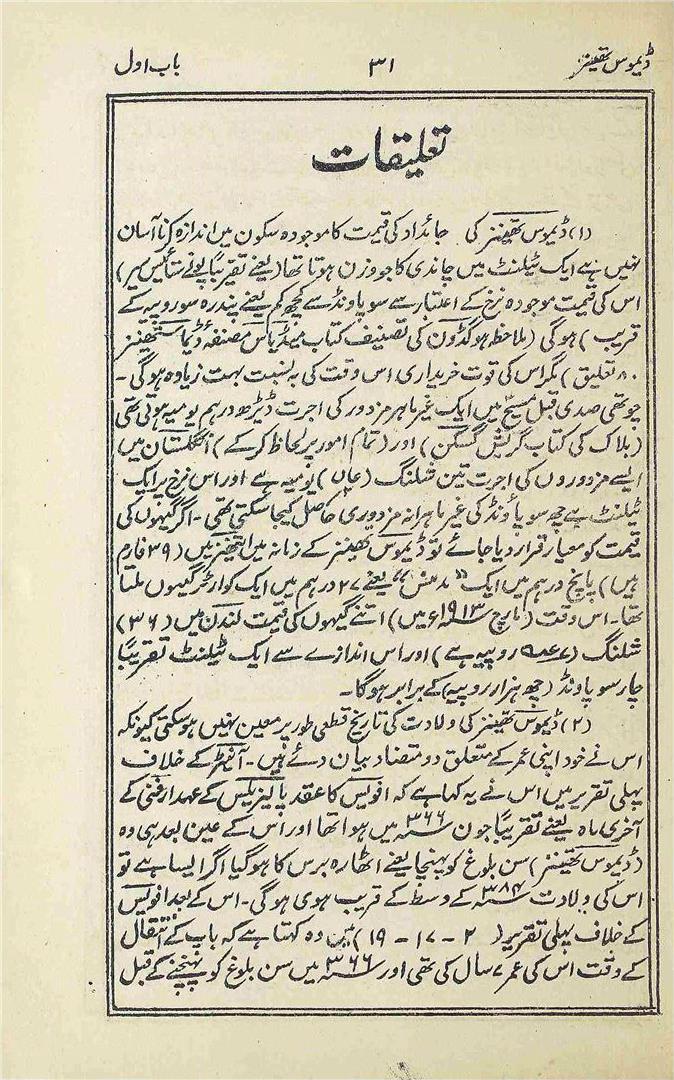 ڈیموس تھینز ۳۱ باب اول
تعلیقات
(۱) ڈیموس تھینز کی جائداد کی قیمت کا موجودہ سکون میں اندازہ کرنا آسان
نہیں ہے ایک ٹیلنٹ میں چاندی کا جو وزن ہوتا تھا (یعنے تقریباً پونے ستائیس سیر)
اس کی قیمت موجودہ نرخ کے اعتبار سے سو پاونڈ سے کچھ کم یعنے پندرہ سو روپیہ کے
قریب) ہوگی (ملاحظہ ہو گڈون کی تصنیف کتاب میڈیاس مصنفہ ڈیماستھینز
۸۰ تعلیق) مگر اس کی قوت خریداری اس وقت کی بہ نسبت بہت زیادہ ہوگی ۔
چوتھی صدی قبل مسیح میں ایک غیر ماہر مزدور کی اجرت ڈیڑھ درہم یومیہ ہوتی تھی
(بلاک کی کتاب گریش گسکن) اور (تمام امور پر لحاظ کر کے) انگلستان میں
ایسے مزدوروں کی اجرت تین شلنگ (عاں) یومیہ ہے اور اس نرخ پر ایک
ٹیلنٹ سے چھ سو پاؤنڈ کی غیر ماہرانہ مزدوری حاصل کیجا سکتی تھی ۔ اگر گیہوں کی
قیمت کو معیار قرار دیا جائے تو ڈیموس تھینز کے زمانہ میں ایتھنز میں (۳۹ فارم
ہیں) پانچ درہم میں ایک "مدمنس" یعنے ۲۷ درہم میں ایک کوارٹر گیہوں ملتا
تھا ۔ اس وقت (مارچ ۱۹۱۳ء میں) اتنے گیہوں کی قیمت لندن میں (۳۶)
شلنگ ( روپیہ ہے) اور اس اندازے سے ایک ٹیلنٹ تقریباً
چار سو پاونڈ (چھ ہزار روپیہ) کے برابر ہوگا ۔
(۲) ڈیموس تھینز کی ولادت کی تاریخ قطعی طور پر معین نہیں ہوسکتی کیونکہ
اس نے خود اپنی عمر کے متعلق دو متضاد بیان دئے ہیں ۔ آنیٹر کے خلاف
پہلی تقریر میں اس نے یہ کہا ہے کہ افوبس کا عقد پالیزیلس کے عہد ارفنی کے
آخری ماہ یعنے تقریباً جون ۳۶۶ سنہ میں ہوا تھا اور اس کے عین بعد ہی وہ
(ڈیموس تھینز) سن بلوغ کو پہنچا یعنے اٹھارہ برس کا ہوگیا اگر ایسا ہے تو
اس کی ولادت ۳۸۴ سنہ کے وسط کے قریب ہوی ہوگی ۔ اس کے بعد افوبس
کے خلاف پہلی تقریر ( ۲ - ۱۷ - ۱۹) میں وہ کہتا ہے کہ باپ کے انتقال
کے وقت اس کی عمر ۷ سال کی تھی اور ۳۶۶ سنہ میں سن بلوغ کو پہنچنے کے قبل